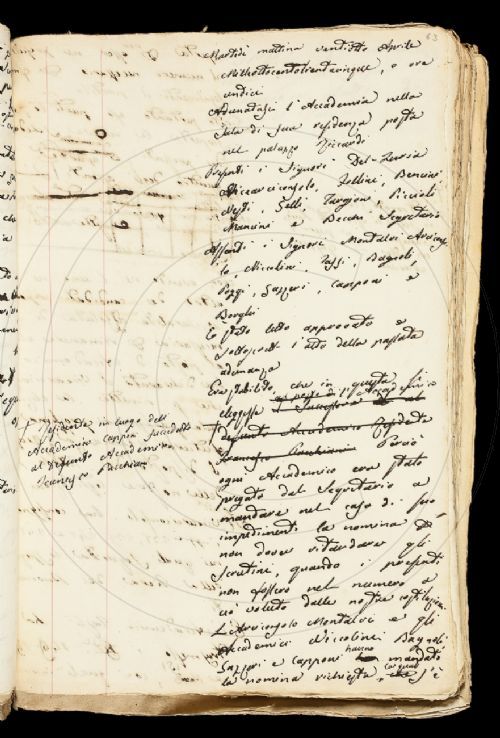 63
Martedì mattina ventotto Aprile
Milleottocentotrentacinque, a ore
undici
Adunatasi l'Accademia nella
Sala di sua residenza posta
nel palazzo Riccardi
Presenti i Signori Del-Furia
Arciconsolo, Zellini, Bencini
Nesti, Gelli, Targioni, Piccioli
Mancini e Becchi Segretario
Assenti i Signori Montalvi Arcicon
lo, Niccolini, Tassi, Bagnoli,
Poggi, Gazzeri, Capponi e
Borghi
fu letto approvato e
sottoscritto l'atto della passata
adunanza
Era stabilito, che in questa si
eleggesse
al posto di Accademico
il Successore al
defunto Accademico Residente
Francesco Perciò
ogni Accademico era stato
pregato dal Segretario a
mandare nel caso di suo
impedimenti la nomina per
non dover ritardare gli
Scrutini, quando i presenti
non fossero nel numero a
ciò voluto dalle nostre costituzioni.
L'Arciconsolo Montalvi e gli
Accademici Niccolini Bagnoli
Gazzeri e Capponi hanno mandato
la nomina richiesta, s'è
residente in luogo dell'
Accademico Cappia succeduto
al Defunto Accademico
Francesco